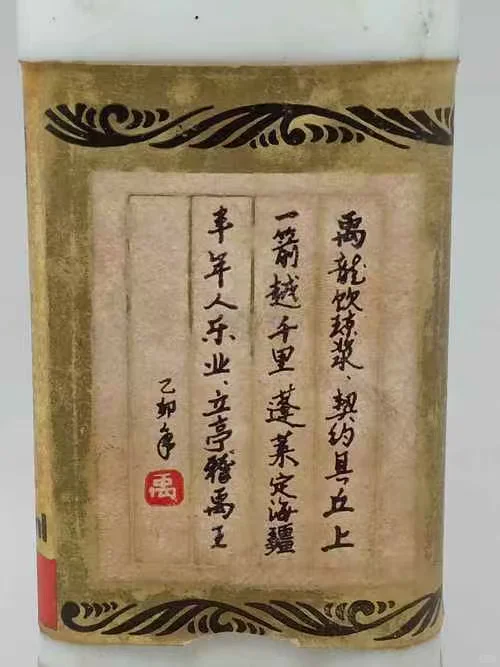 禹龍饮琼浆、契约具丘上
一箭越千里蓬莱定海疆
丰年人乐业、立亭雅禹王
乙卯年
禹